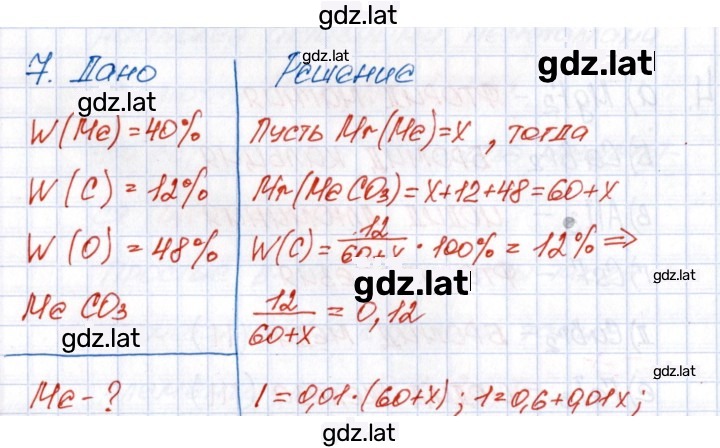 gdz.lat
gdz.lat
gdz.lat
7. Дано
Решение
gdz.lat
W(Me) = 40%
Пусть Mr(Me) = X, тогда
W(C) = 12%
Mr(MeCO3) = X+12+48 = 60+X
W(O) = 48%
W(C) = 12/60+X · 100% = 12% ⇒
gdz.lat
gdz.lat
MeCO3
12/60+X = 0,12
gdz.lat
gdz.lat
Me - ?
1 = 0,01·(60+X); 1 = 0,6+0,01X;
gdz.lat